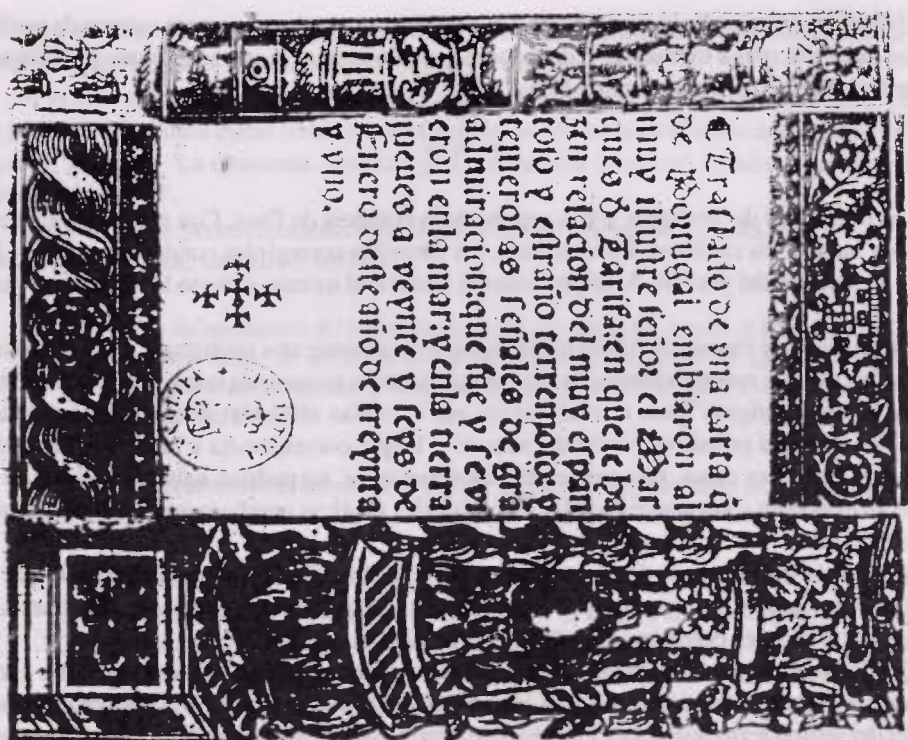 Traslado de vna carta q̃
de Portugal embiaron al
muy illustre señor el Mar
ques ð Tarifa en que le ha
zen relacion del muy espan
toso y estraño terremoto: τ
temerosas señales de grã
admiraciõ: que fue y se vi
eron en la mar y en la tierra
jueues a veynte y seys de
Enero deste año de treynta
y vno.